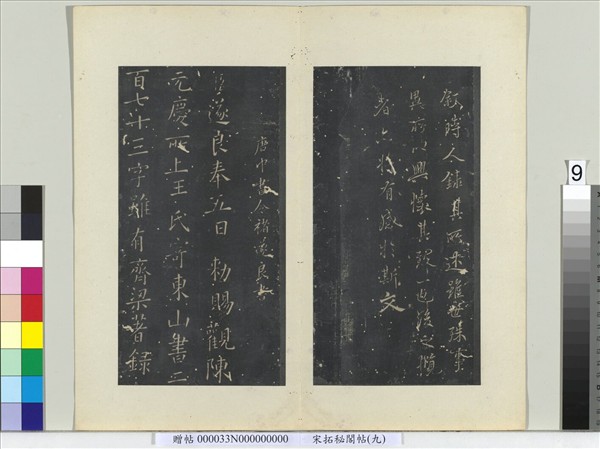 敘時人錄其所述雖世殊事
異所以興懷其致一也後之攬
者亦將有感於斯文
唐中書令褚遂良書
遂良奉五日 勅賜觀陳
元慶所上王氏寄東山書三
百七十三字雖有齊梁著錄
9
贈帖 000033N000000000 宋拓秘閣帖(九)